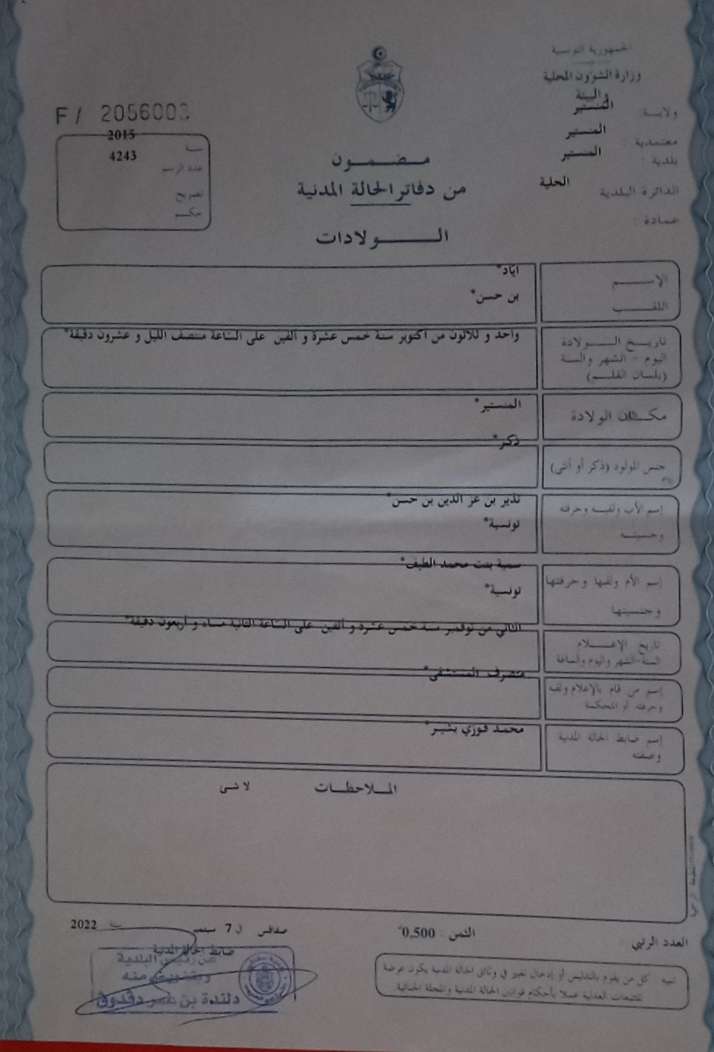 الجمهورية التونسية
وزارة الشؤون المحلية
والبيئة
ولاية : المنستير
معتمدية : المنستير
بلدية : المنستير
الدائرة البلدية المحلية
عمادة :
F / 2056003
سنة 2015
عدد الرسم 4243
تصريح
حكم
مضمون
من دفاتر الحالة المدنية
الولادات
الإسم اياد*
اللقب بن حسن*
تاريخ الولادة
اليوم - الشهر والسنة
(بلسان القلم)
واحد و ثلاثون من اكتوبر سنة خمس عشرة و ألفين على الساعة منتصف الليل و عشرون دقيقة*
مكان الولادة المنستير*
جنس المولود (ذكر أو أنثى) ذكر*
إسم الأب ولقبه وحرفته نذير بن عز الدين بن حسن*
وجنسيته تونسية*
إسم الأم ولقبها وحرفتها سمية بنت محمد الطيف*
وجنسيتها تونسية*
تاريخ الإعلام
السنة-الشهر واليوم والساعة
الثاني من نوفمبر سنة خمس عشرة و ألفين على الساعة الثانية مساء و أربعون دقيقة*
إسم من قام بالإعلام ولقبه
وحرفته أو المحكمة
متصرف المستشفى*
إسم ضابط الحالة المدنية
وصفته
محمد فوزي بشير*
الملاحظات لا شى
العدد الرتبي :
الثمن : 0,500*
صفاقس في 7 سبتمبر سنة 2022
ضابط الحالة المدنية
عن رئيس البلدية
وبتفويض منه
تنبيه كل من يقوم بالتدليس أو إدخال تغيير في وثائق الحالة المدنية يكون عرضة
للتتبعات العدلية عملا بأحكام قوانين الحالة المدنية والمجلة الجنائية